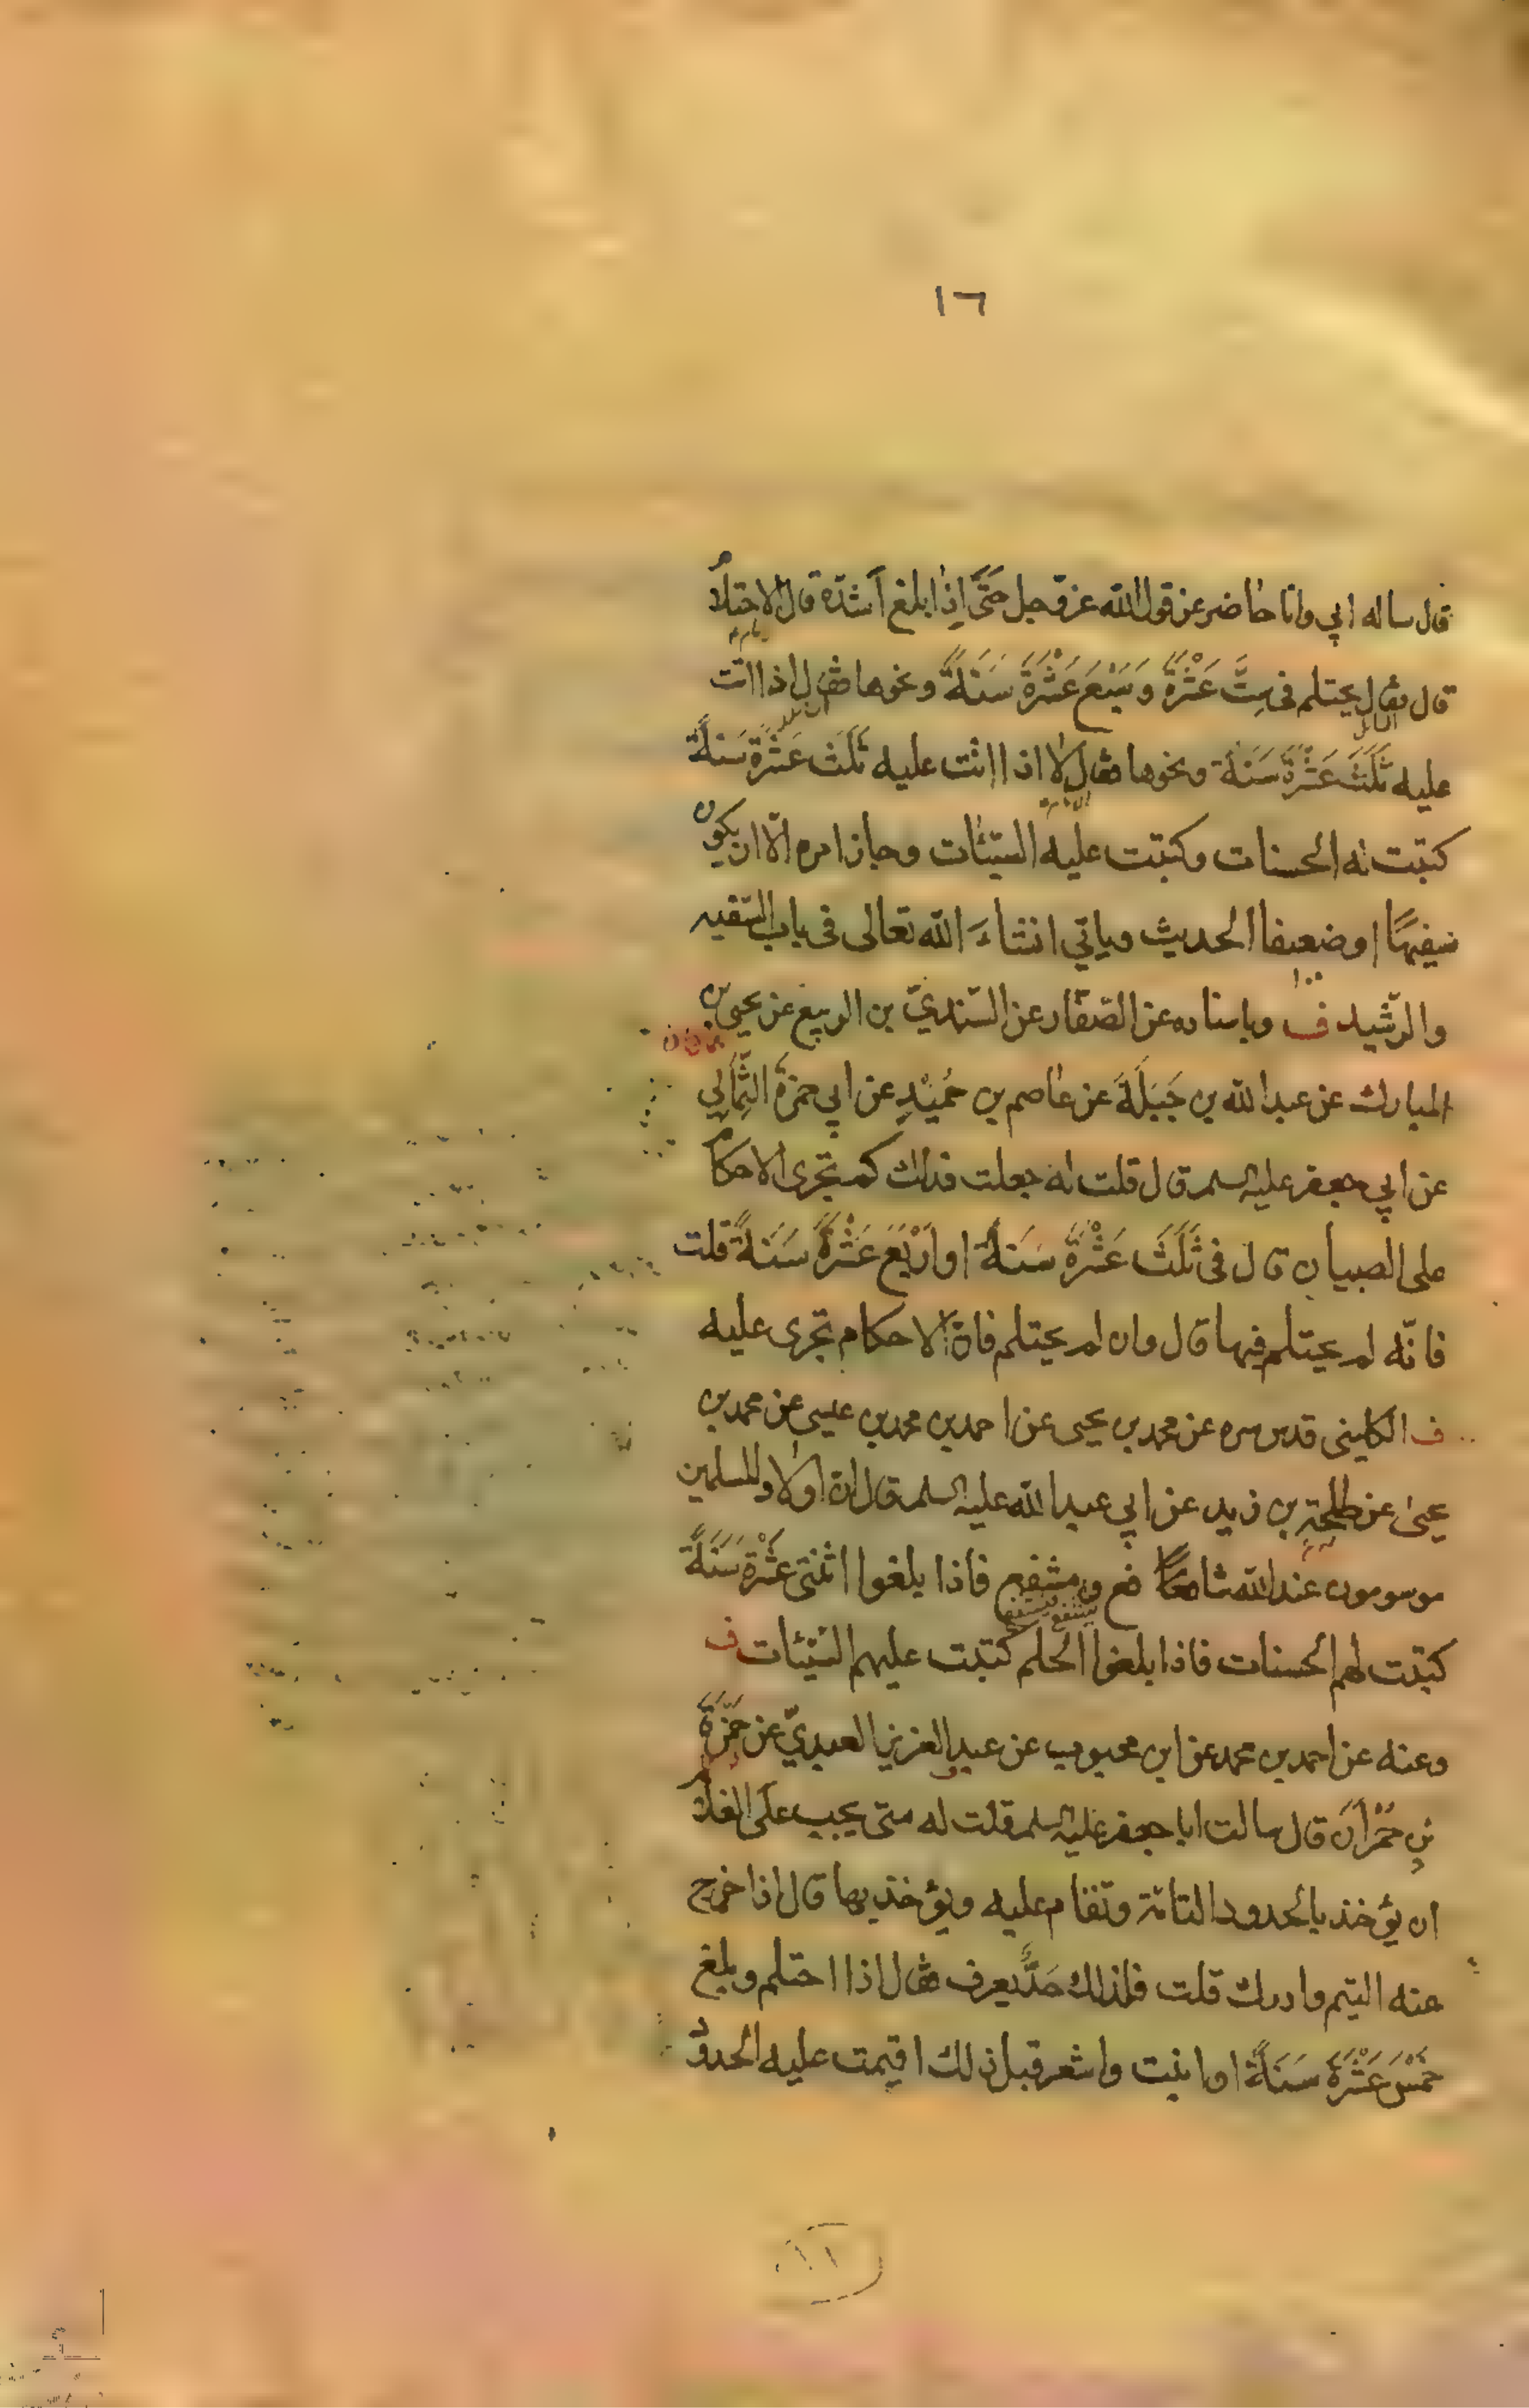 ١٦
قال ساله ابي وانا حاضر عن قول الله عز وجل حَتَّى اِذا بلغ اَشدّه قال الاحتلام
قال فقال يحتلم فى سِتَّ عَشْرَةَ وَسَبْعَ عَشْرَةَ سَنَةً ونحوها فقال اذا اتت
عليه ثَلَثَ عَشْرَةَ سَنَة ونحوها فقال لا اذا اتت عليه ثَلَث عَشْرَة سَنَةً
كتبت له الحسنات وكتبت عليه السيّئات وجاز امره الّا ان يكون
سفيهًا او ضعيفا الحديث وياتي انشاءَ الله تعالى فى باب السّفيه
والرّشيد ف وباسناده عن الصّفّار عن السّنديّ بن الربيع عن يحيى بن
المبارك عن عبد الله بن جَبَلَةَ عن عاصم بن حُمَيْدٍ عن ابي حمزةَ الثُّمالي
عن ابي جعفر عليه السلم قال قلت له جعلت فداك كم تجرى الاحكام
على الصبيان قال فى ثَلَثَ عَشْرَةَ سَنَة او اَرْبَعَ عَشْرَةَ سَنَةً قلت
فانّه لم يحتلم فيها قال وان لم يحتلم فانّ الاحكام تجرى عليه
ف الكلينى قدس سره عن محمد بن يحيى عن احمد بن محمد بن عيسى عن محمد بن
يحيى عن طلحة بن زيد عن ابي عبد الله عليه السلم قال انّ اولاد المسلمين
موسومون عند الله شافع ومشفع فاذا بلغوا اثنتى عَشْرَةَ سَنَةً
كتبت لهم الحسنات فاذا بلغوا الحلم كتبت عليهم السّيّئات ف
وعنه عن احمد بن محمد عن ابن محبوب عن عبد العزيز العبديّ عن حَمْزَةَ
بن حُمْرَانَ قال سالت ابا جعفر عليه السلم قلت له متى يجب على الغلام
ان يؤخذ بالحدود التامّة وتقام عليه ويؤخذ بها قال اذا خرج
عنه اليتم وادرك قلت فلذلك حَدٌّ يعرف فقال اذا احتلم وبلغ
خَمْسَ عَشْرَةَ سَنَةً او انبت واشعر قبل ذلك اقيمت عليه الحدود